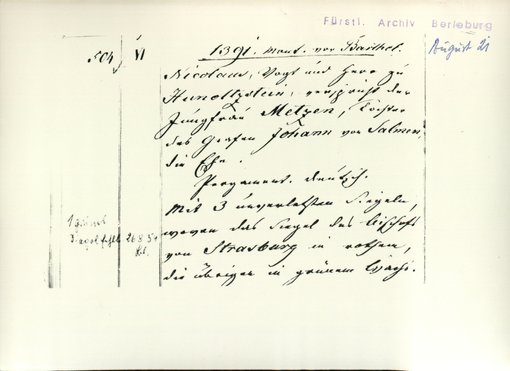 Fürstl. Archiv Berleburg
August 21
504
VI
1391. mont. vor Barthol.
Nicolaus, Vogt und Herr zu
Hunoltzstein, verspricht der
Jungfrau Metzen, Tochter
des Grafen Johann von Salmen,
die Ehe.
Pergament. deutsch.
Mit 3 unverletzten Siegeln,
wovon das Siegel des Bischofs
von Strasburg in rothem,
die übrigen in grünem Wachs.
Siegel fehlt 26.8.54